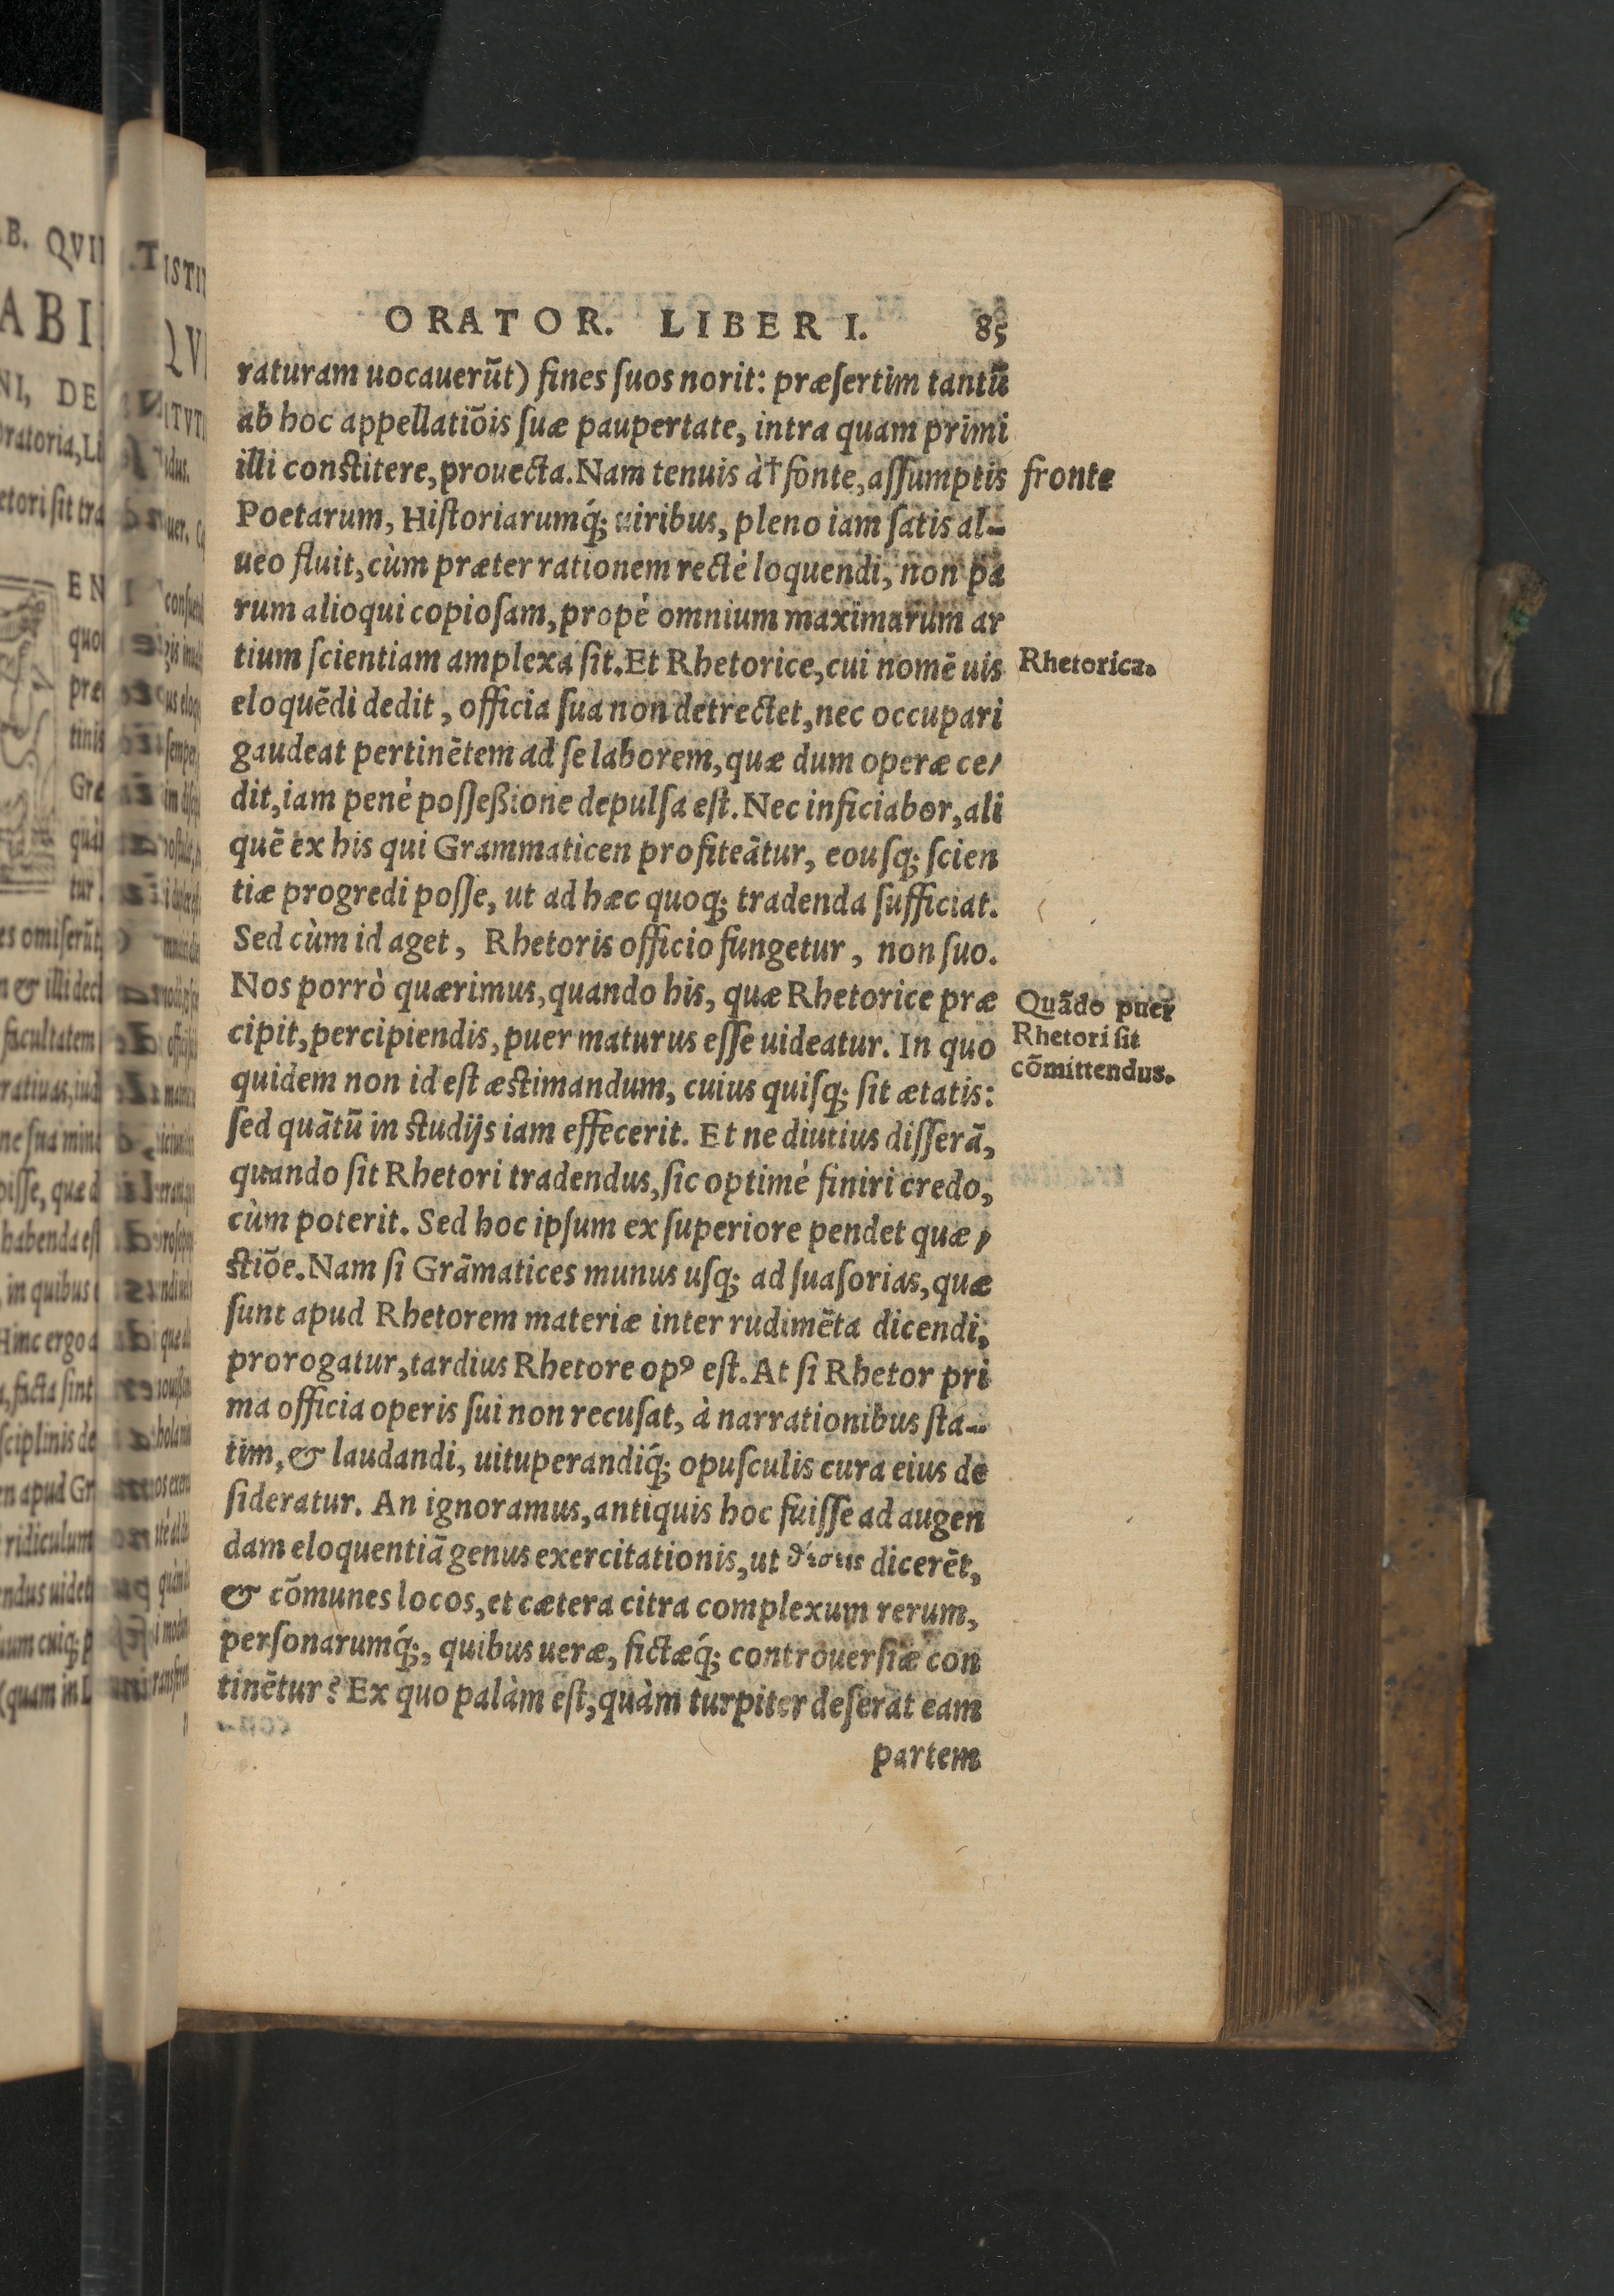 ORATOR. LIBER I. 85
raturam uocauerũt) fines ſuos norit: præſertim tantũ
ab hoc appellatiõis ſuæ paupertate, intra quam primi
illi conſtitere, prouecta. Nam tenuis à† fonte, aſſumptis
fronte
Poetarum, Hiſtoriarumq́; uiribus, pleno iam ſatis al-
ueo fluit, cùm præter rationem rectè loquendi, non pa
rum alioqui copioſam, propè omnium maximarum ar
tium ſcientiam amplexa ſit. Et Rhetorice, cui nomẽ uis
Rhetorica.
eloquẽdi dedit, officia ſua non detrectet, nec occupari
gaudeat pertinẽtem ad ſe laborem, quæ dum operæ ce/
dit, iam penè poſſeßione depulſa eſt. Nec inficiabor, ali
quẽ ex his qui Grammaticen profiteãtur, eouſq; ſcien
tiæ progredi poſſe, ut ad hæc quoq; tradenda ſufficiat.
Sed cùm id aget, Rhetoris officio fungetur, non ſuo.
Nos porrò quærimus, quando his, quæ Rhetorice præ
cipit, percipiendis, puer maturus eſſe uideatur. In quo
Quãdo puer
Rhetori ſit
cõmittendus.
quidem non id eſt æſtimandum, cuius quiſq; ſit ætatis:
ſed quãtũ in ſtudijs iam effecerit. Et ne diutius diſſerã,
quando ſit Rhetori tradendus, ſic optimè finiri credo,
cùm poterit. Sed hoc ipſum ex ſuperiore pendet quæ/
ſtiõe. Nam ſi Grãmatices munus uſq; ad ſuaſorias, quæ
ſunt apud Rhetorem materiæ inter rudimẽta dicendi,
prorogatur, tardius Rhetore opꝰ eſt. At ſi Rhetor pri
ma officia operis ſui non recuſat, à narrationibus ſta-
tim, & laudandi, uituperandiq́; opuſculis cura eius de
ſideratur. An ignoramus, antiquis hoc fuiſſe ad augen
dam eloquentiã genus exercitationis, ut dicerẽt,
& cõmunes locos, et cætera citra complexum rerum,
perſonarumq́;, quibus ueræ, fictæq́; controuerſiæ con
tinẽtur? Ex quo palàm eſt, quàm turpiter deſerat eam
partem